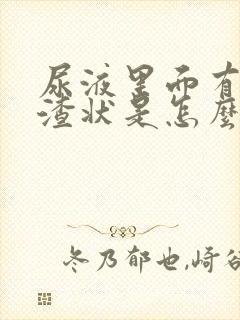 尿液里面有
渣状是怎麽
冬乃郁也,崎谷